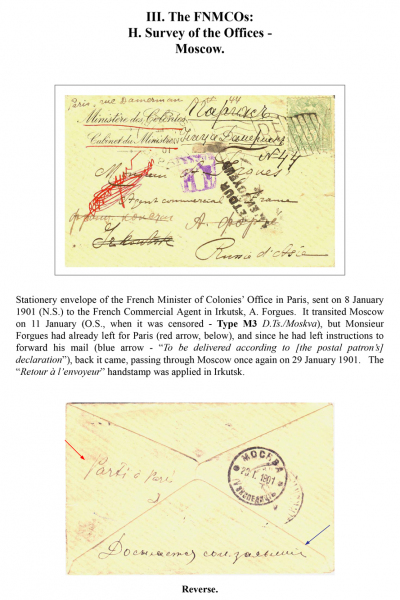 III. The FNMCOs:
H. Survey of the Offices -
Moscow.
Paris, rue Damerman 44
Ministère des Colonies
Парижъ
Cabinet du Ministre
№ 44
Monsieur Forgues
Agent commercial
A. Forgues
Irkoutsk
Russie d'Asie
RETOUR
À L'ENVOYEUR
Stationery envelope of the French Minister of Colonies' Office in Paris, sent on 8 January
1901 (N.S.) to the French Commercial Agent in Irkutsk, A. Forgues. It transited Moscow
on 11 January (O.S., when it was censored - Type M3 D.Ts./Moskva), but Monsieur
Forgues had already left for Paris (red arrow, below), and since he had left instructions to
forward his mail (blue arrow - "To be delivered according to [the postal patron's]
declaration"), back it came, passing through Moscow once again on 29 January 1901. The
"Retour à l'envoyeur" handstamp was applied in Irkutsk.
МОСКВА
1901
Parti à Paris
Reverse.